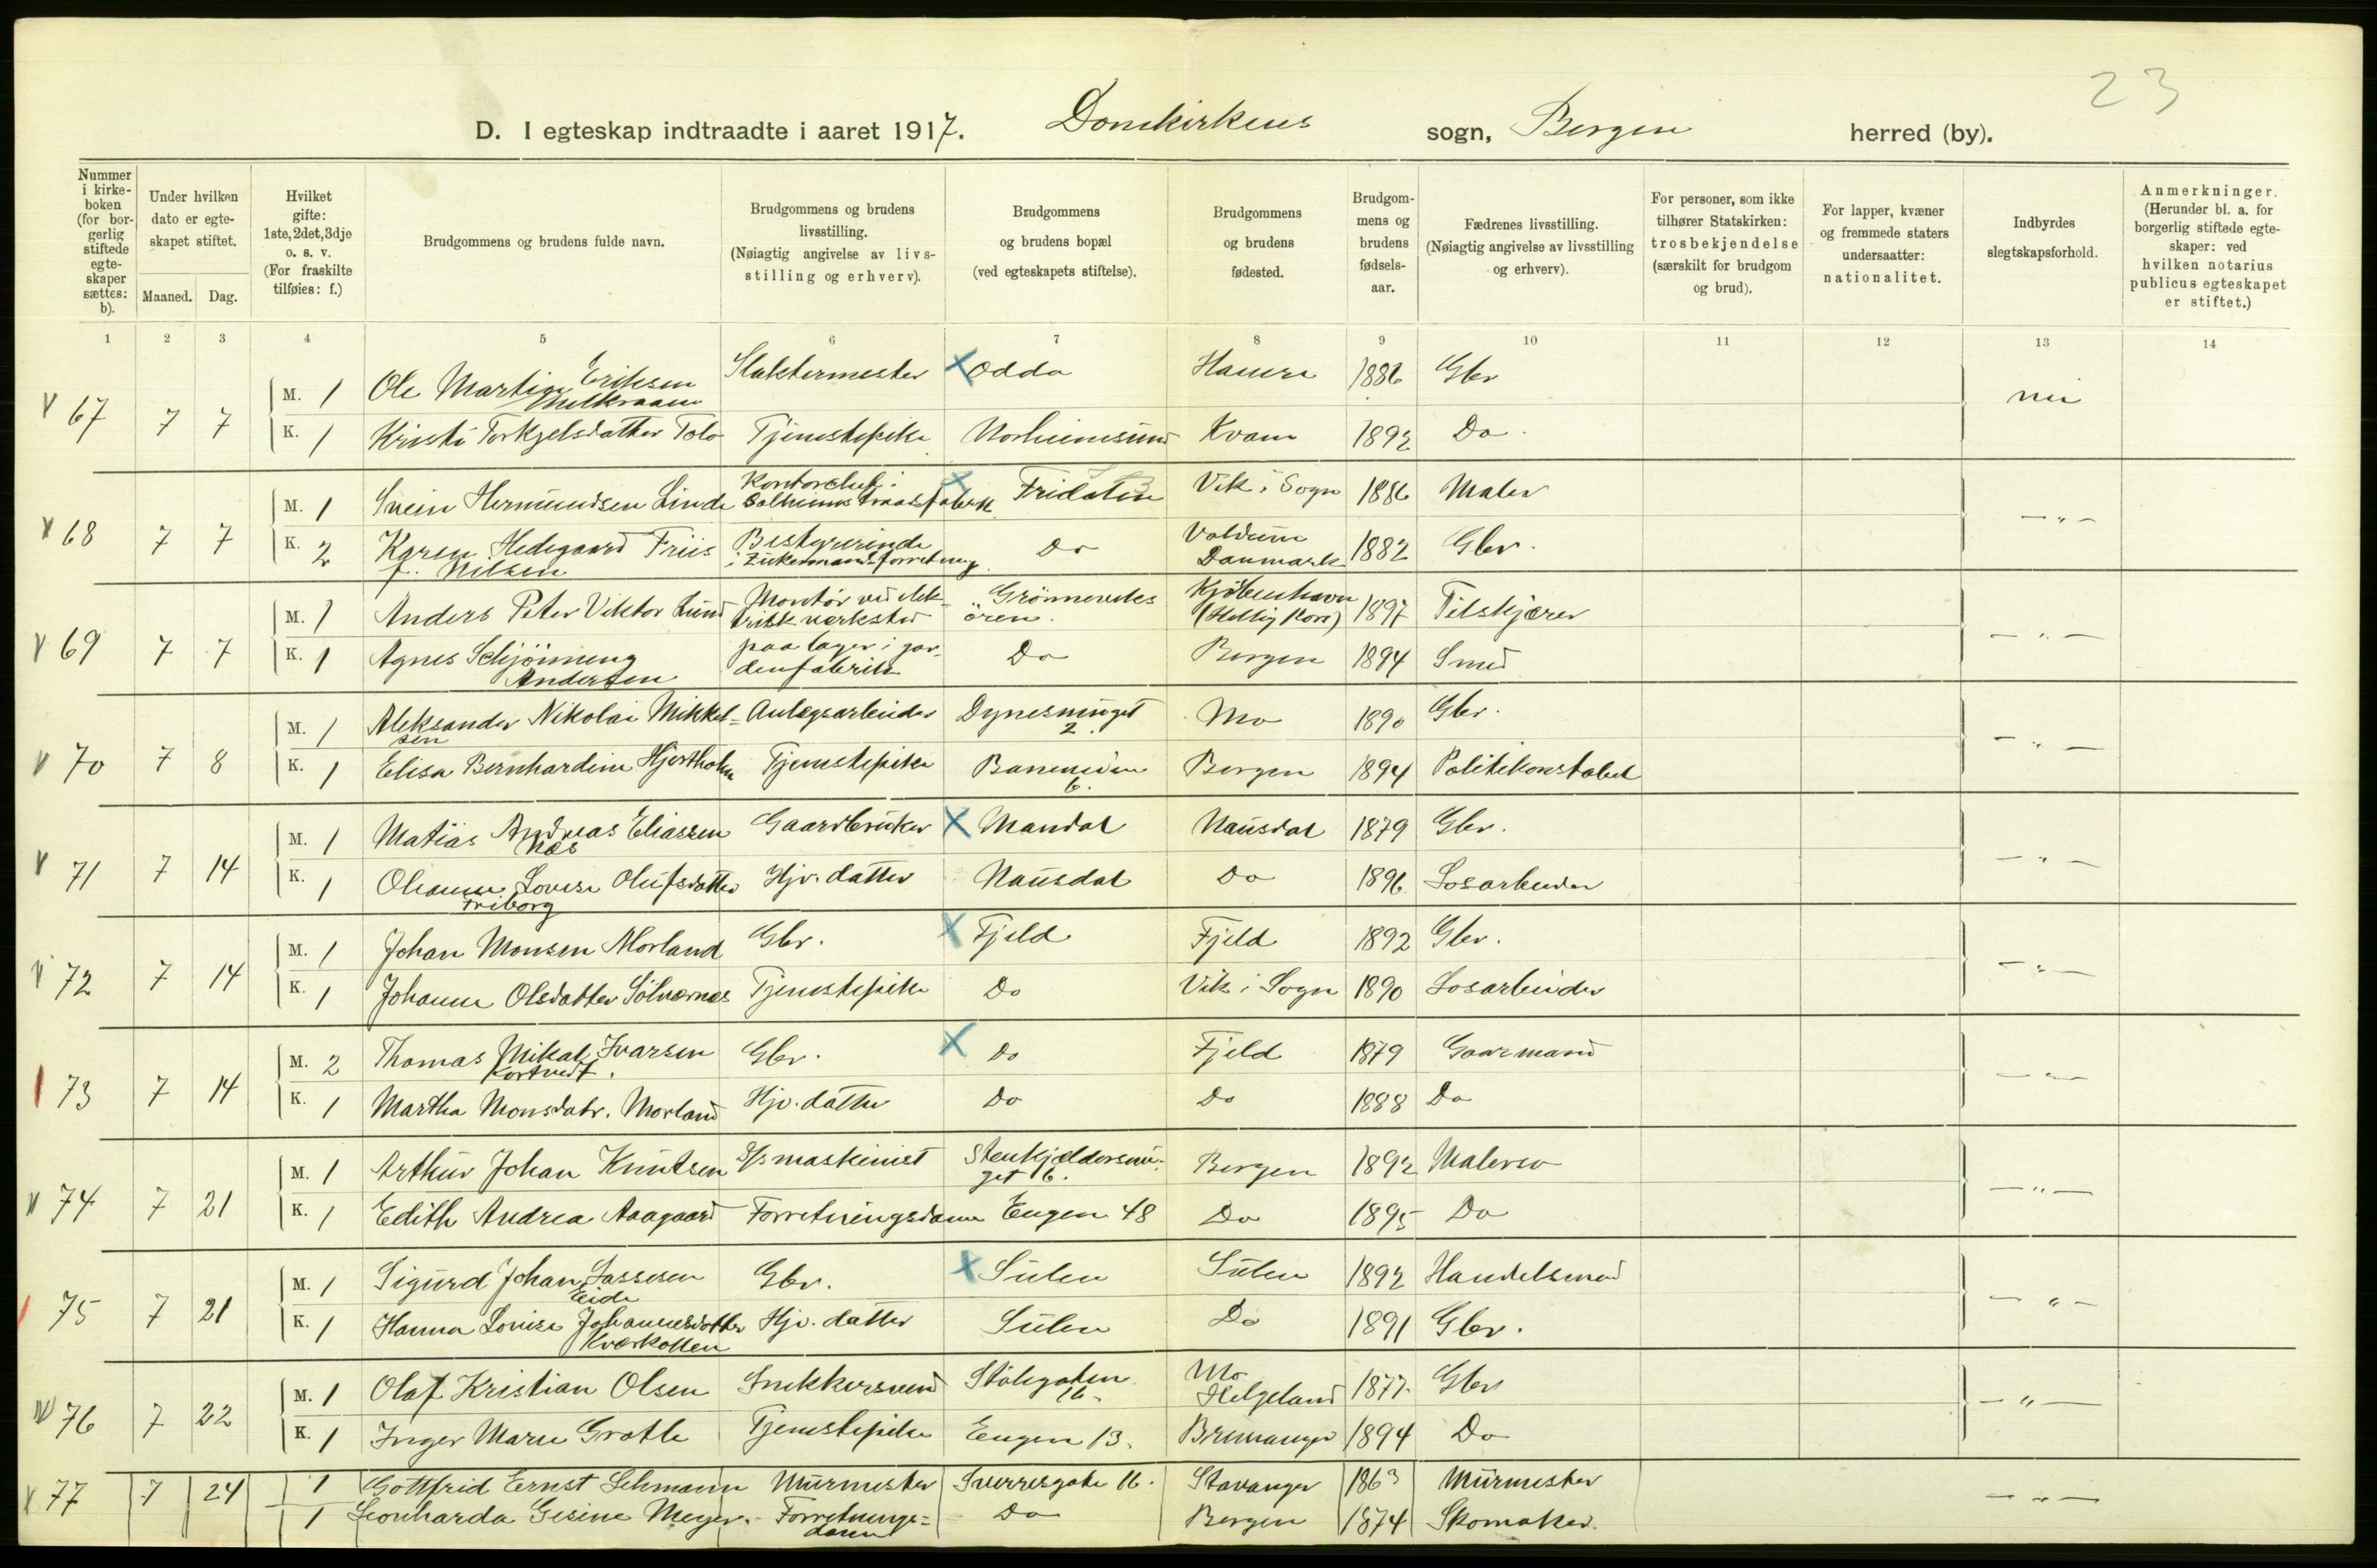 23
D. I egteskap indtraadte i aaret 1917. Domkirkens sogn, Bergen herred (by).
Nummer i kirke-boken (for bor-gerlig stiftede egte-skaper sættes: b).
Under hvilken dato er egte-skapet stiftet.
Maaned. Dag.
Hvilket gifte: 1ste, 2det, 3dje o. s. v. (For fraskilte tilføies: f.)
Brudgommens og brudens fulde navn.
Brudgommens og brudens livsstilling. (Nøiagtig angivelse av livs-stilling og erhverv).
Brudgommens og brudens bopæl (ved egteskapets stiftelse).
Brudgommens og brudens fødested.
Brudgom-mens og brudens fødsels-aar.
Fædrenes livsstilling. (Nøiagtig angivelse av livsstilling og erhverv).
For personer, som ikke tilhører Statskirken: trosbekjendelse (særskilt for brudgom og brud).
For lapper, kvæner og fremmede staters undersaatter: nationalitet.
Indbyrdes slegtskapsforhold.
Anmerkninger. (Herunder bl. a. for borgerlig stiftede egte-skaper: ved hvilken notarius publicus egteskapet er stiftet.)
1 2 3 4 5 6 7 8 9 10 11 12 13 14
67 7 7 M. 1 Ole Martin Eriksen Slaktermester Odda Hamre 1886 Gbr nei
K. 1 Kristi Torkjelsdatter Tolo Tjenestepike Norheimsund Kvam 1892 Do
68 7 7 M. 1 Svein Hermundsen Linde Kontorchef i Solheims traadfabrik Fridalen Vik i Sogn 1886 Maler -"-
K. 2 Karen Hedegaard Friis f. Nilsen Bestyrerinde i Zuckermansforretning Do Voldum Danmark 1882 Gbr.
69 7 7 M. 1 Anders Peter Viktor Lund Montør ved elek-trisk verksted Grønnevik​s ören. Kjöbenhavn (Hellig Kors) 1897 Tilskjærer -"-
K. 1 Agnes Schjönning Andersen paa lager i gar-denfabrik Do Bergen 1894 Smed
70 7 8 M. 1 Aleksander Nikolai Mikkel-sen Anlægsarbeider Dynesmuget 2. Mo 1890 Gbr. -"-
K. 1 Elisa Bernhardine Hjertholm Tjenestepike Baneveien 6. Bergen 1894 Politikonstabel
71 7 14 M. 1 Matias Andreas Eliassen Næs Gaardbruker Mandal Nausdal 1879 Gbr. -"-
K. 1 Oleanne Lovise Olufsdatter Friborg Hjv. datter Nausdal Do 1896 Losarbeider
72 7 14 M. 1 Johan Monsen Morland Gbr. Fjeld Fjeld 1892 Gbr. -"-
K. 1 Johanne Olsdatter Sölvernes Tjenestepike Do Vik i Sogn 1890 Losarbeider
73 7 14 M. 2 Thomas Mikal Ivarsen Kortvedt. Gbr. Do Fjeld 1879 Gaarmand -"-
K. 1 Martha Monsdatr. Morland Hjv. datter Do Do 1888 Do
74 7 21 M. 1 Arthur Johan Knutsen S/s maskinist Stenkjeldersmu-get 6. Bergen 1892 Malersv -"-
K. 1 Edith Andrea Aagaard Forretningsdame Engen 48 Do 1895 Do
75 7 21 M. 1 Sigurd Johan Lassesen Eide Gbr. Sulen Sulen 1892 Handelsmand -"-
K. 1 Hanna Lovise Johannesdatter Kværkotten Hjv. datter Sulen Do 1891 Gbr.
76 7 22 M. 1 Olaf Kristian Olsen Snekkersvend Stölegaten 16. Mo Helgeland 1877 Gbr -"-
K. 1 Inger Marie Grotle Tjenestepike Engen 13. Bremanger 1894 Do
77 7 24 1 Gottfrid Ernst Lehmann Murmester Sverresgate 16. Stavanger 1863 Murmester -"-
1 Leonharda Gesine Meyer Forretnings=dame Do Bergen 1874 Skomaker.